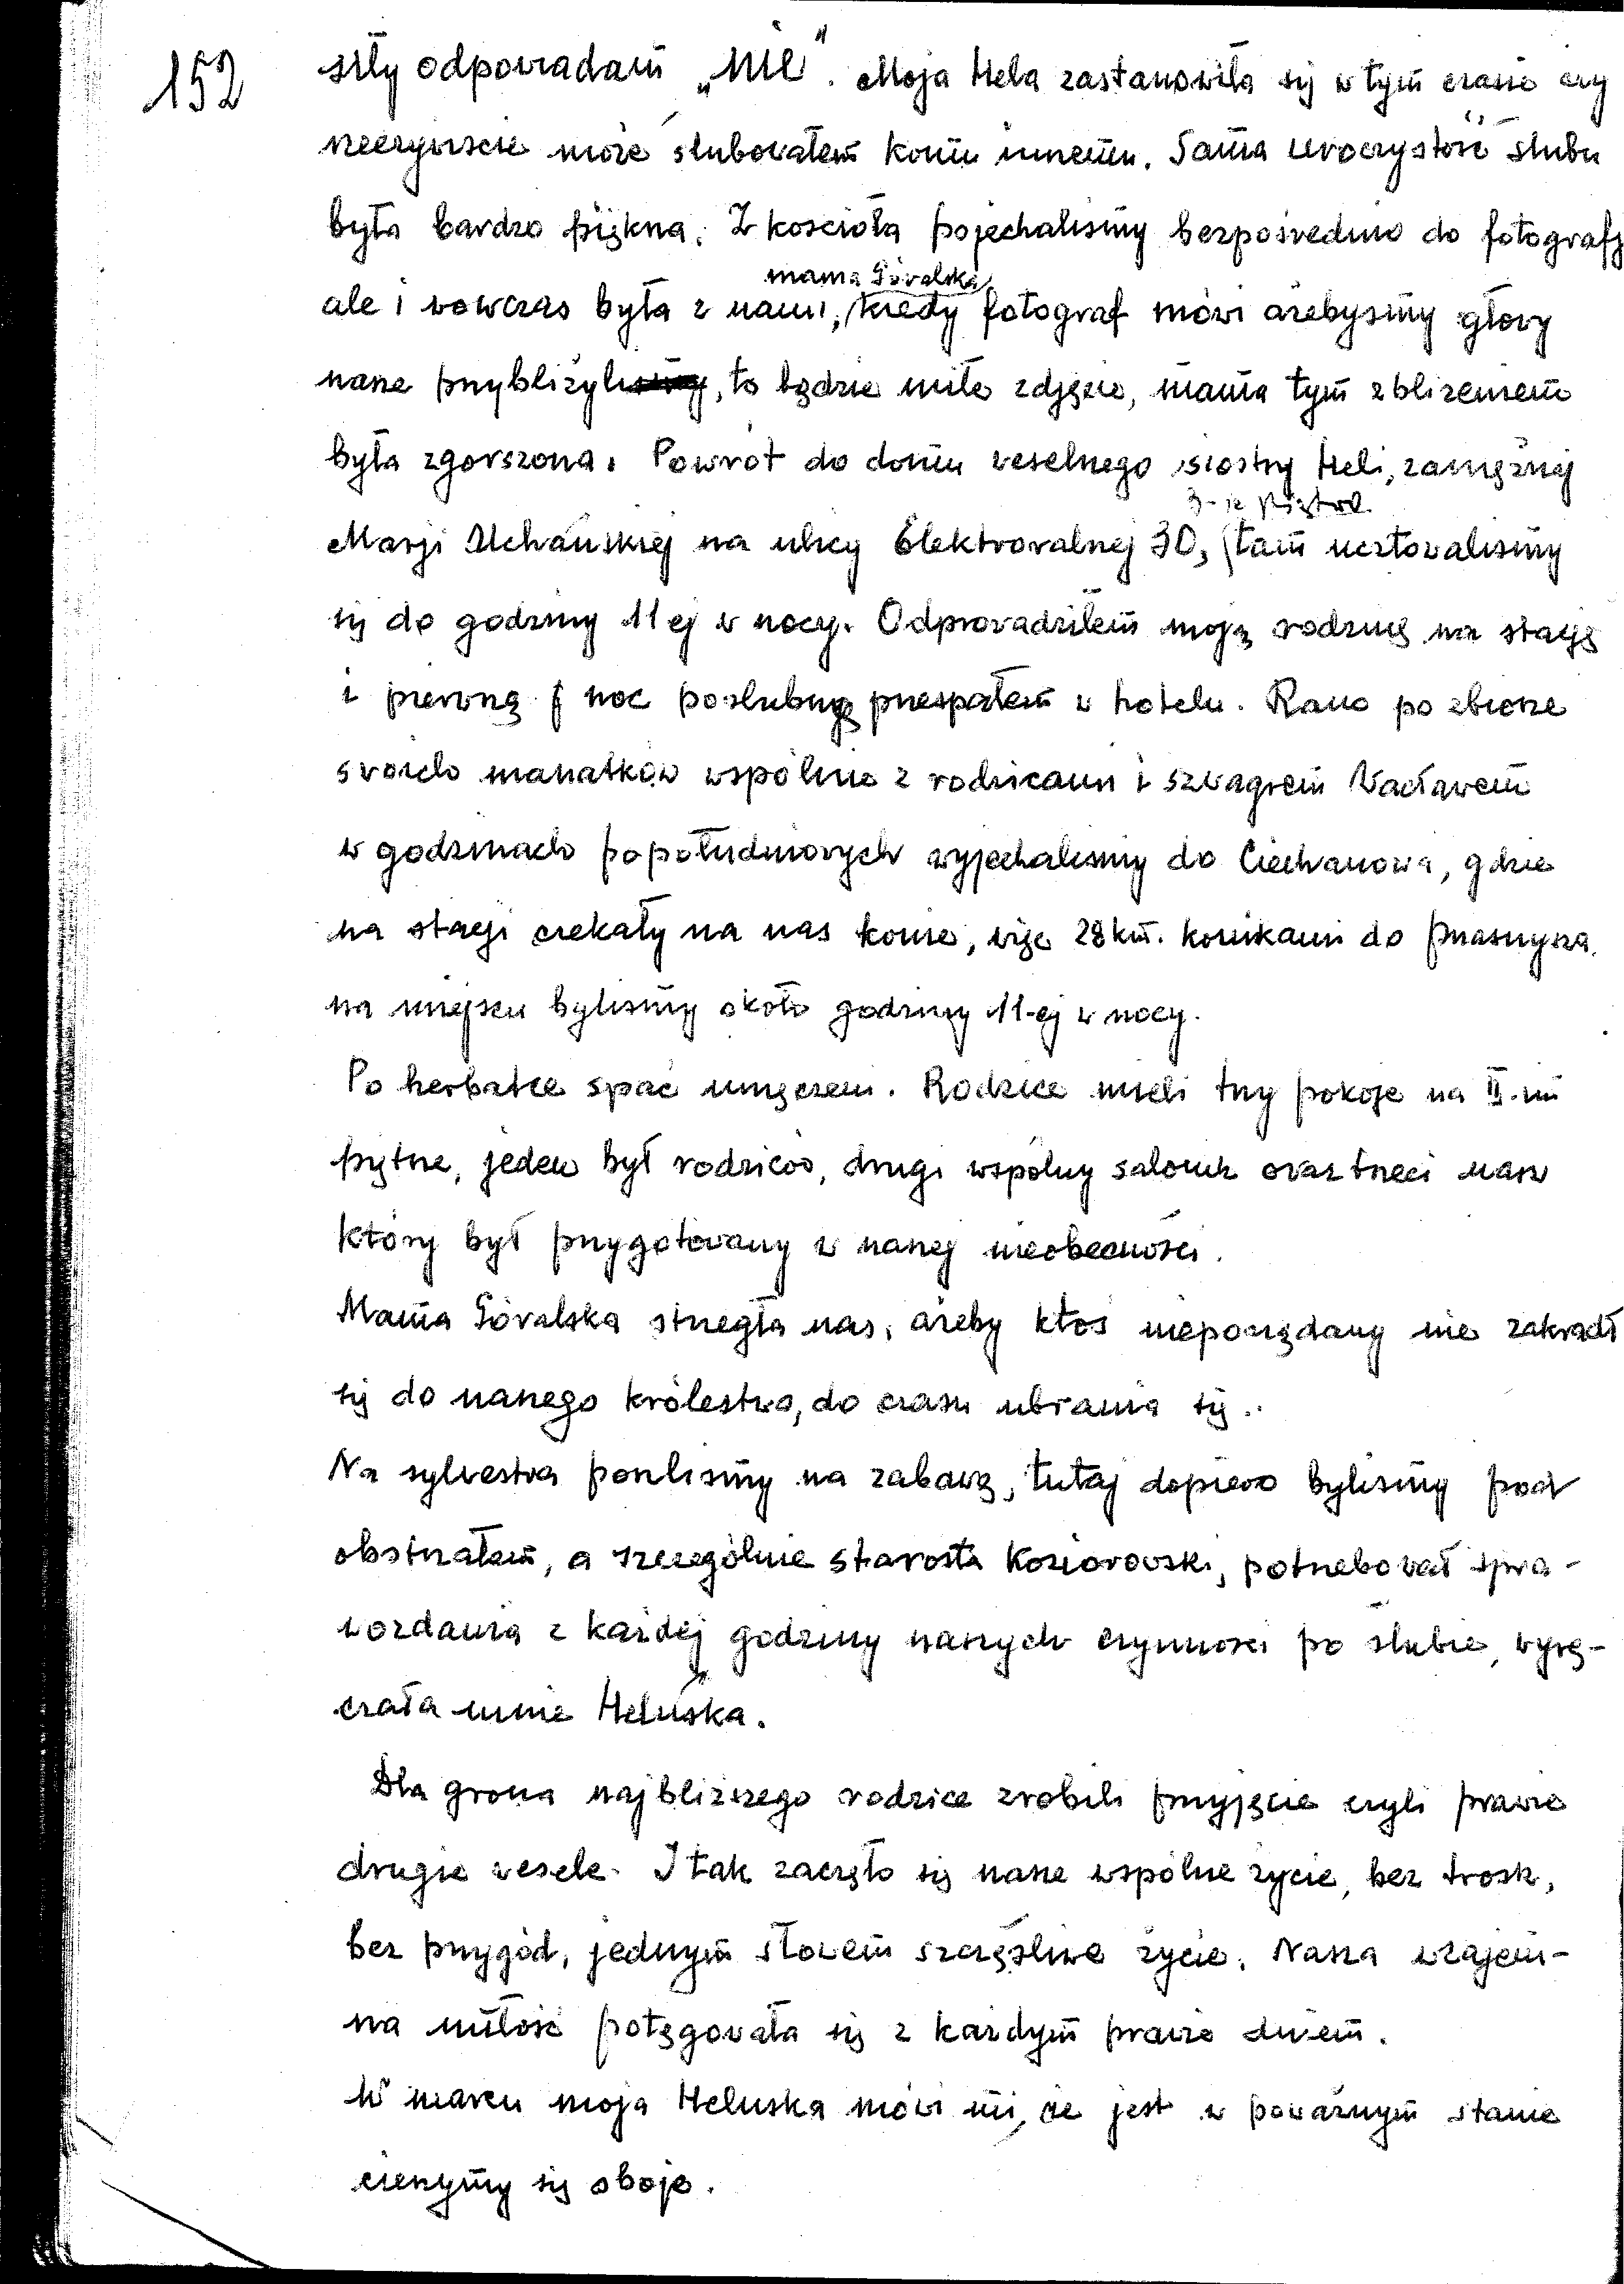 152
siły odpowiadam „NIE”. Moja Hela zastanowiła się w tym czasie czy
rzeczywiście może ślubowałem komu innemu. Sama uroczystość ślubu
była bardzo piękna. Z kościoła pojechaliśmy bezpośrednio do fotografa
mama Góralska
ale i wówczas była z nami, kiedy fotograf mówi ażebyśmy głowy
nasze przybliżyli, to będzie miłe zdjęcie, mama tym zbliżeniem
była zgorszona. Powrót do domu weselnego siostry Heli, zamężnej
3-ie piętro.
Marji Uchańskiej na ulicy Elektoralnej 30, tam ucztowaliśmy
się do godziny 11 ej w nocy. Odprowadziłem moją rodzinę na stację
i pierwszą noc poślubną przespałem w hotelu. Rano po zbiorze
swoich manatków wspólnie z rodzicami i szwagrem Wacławem
w godzinach popołudniowych wyjechaliśmy do Ciechanowa, gdzie
na stacji czekały na nas konie, więc 28 km. konikami do Przasnysza.
na miejscu byliśmy około godziny 11-ej w nocy.
Po herbatce spać umęczeni. Rodzice mieli trzy pokoje na II-im
piętrze, jeden był rodziców, drugi wspólny salonik oraz trzeci nasz
który był przygotowany w naszej nieobecności.
Mama Góralska strzegła nas, ażeby ktoś niepożądany nie zakradł
się do naszego królestwa, do czasu ubrania się.
Na sylwestra poszliśmy na zabawę, tutaj dopiero byliśmy pod
obstrzałem, a szczególnie starosta Koziorowski, potrzebował spra-
wozdania z każdej godziny naszych czynności po ślubie, wyrę-
czała mnie Heluśka.
Dla grona najbliższego rodzice zrobili przyjęcie czyli prawie
drugie wesele. I tak zaczęło się nasze wspólne życie, bez trosk,
bez przygód, jednym słowem szczęśliwe życie. Nasza wzajem-
na miłość potęgowała się z każdym prawie dniem.
W marcu moja Heluska mówi mi, że jest w poważnym stanie
cieszymy się oboje.